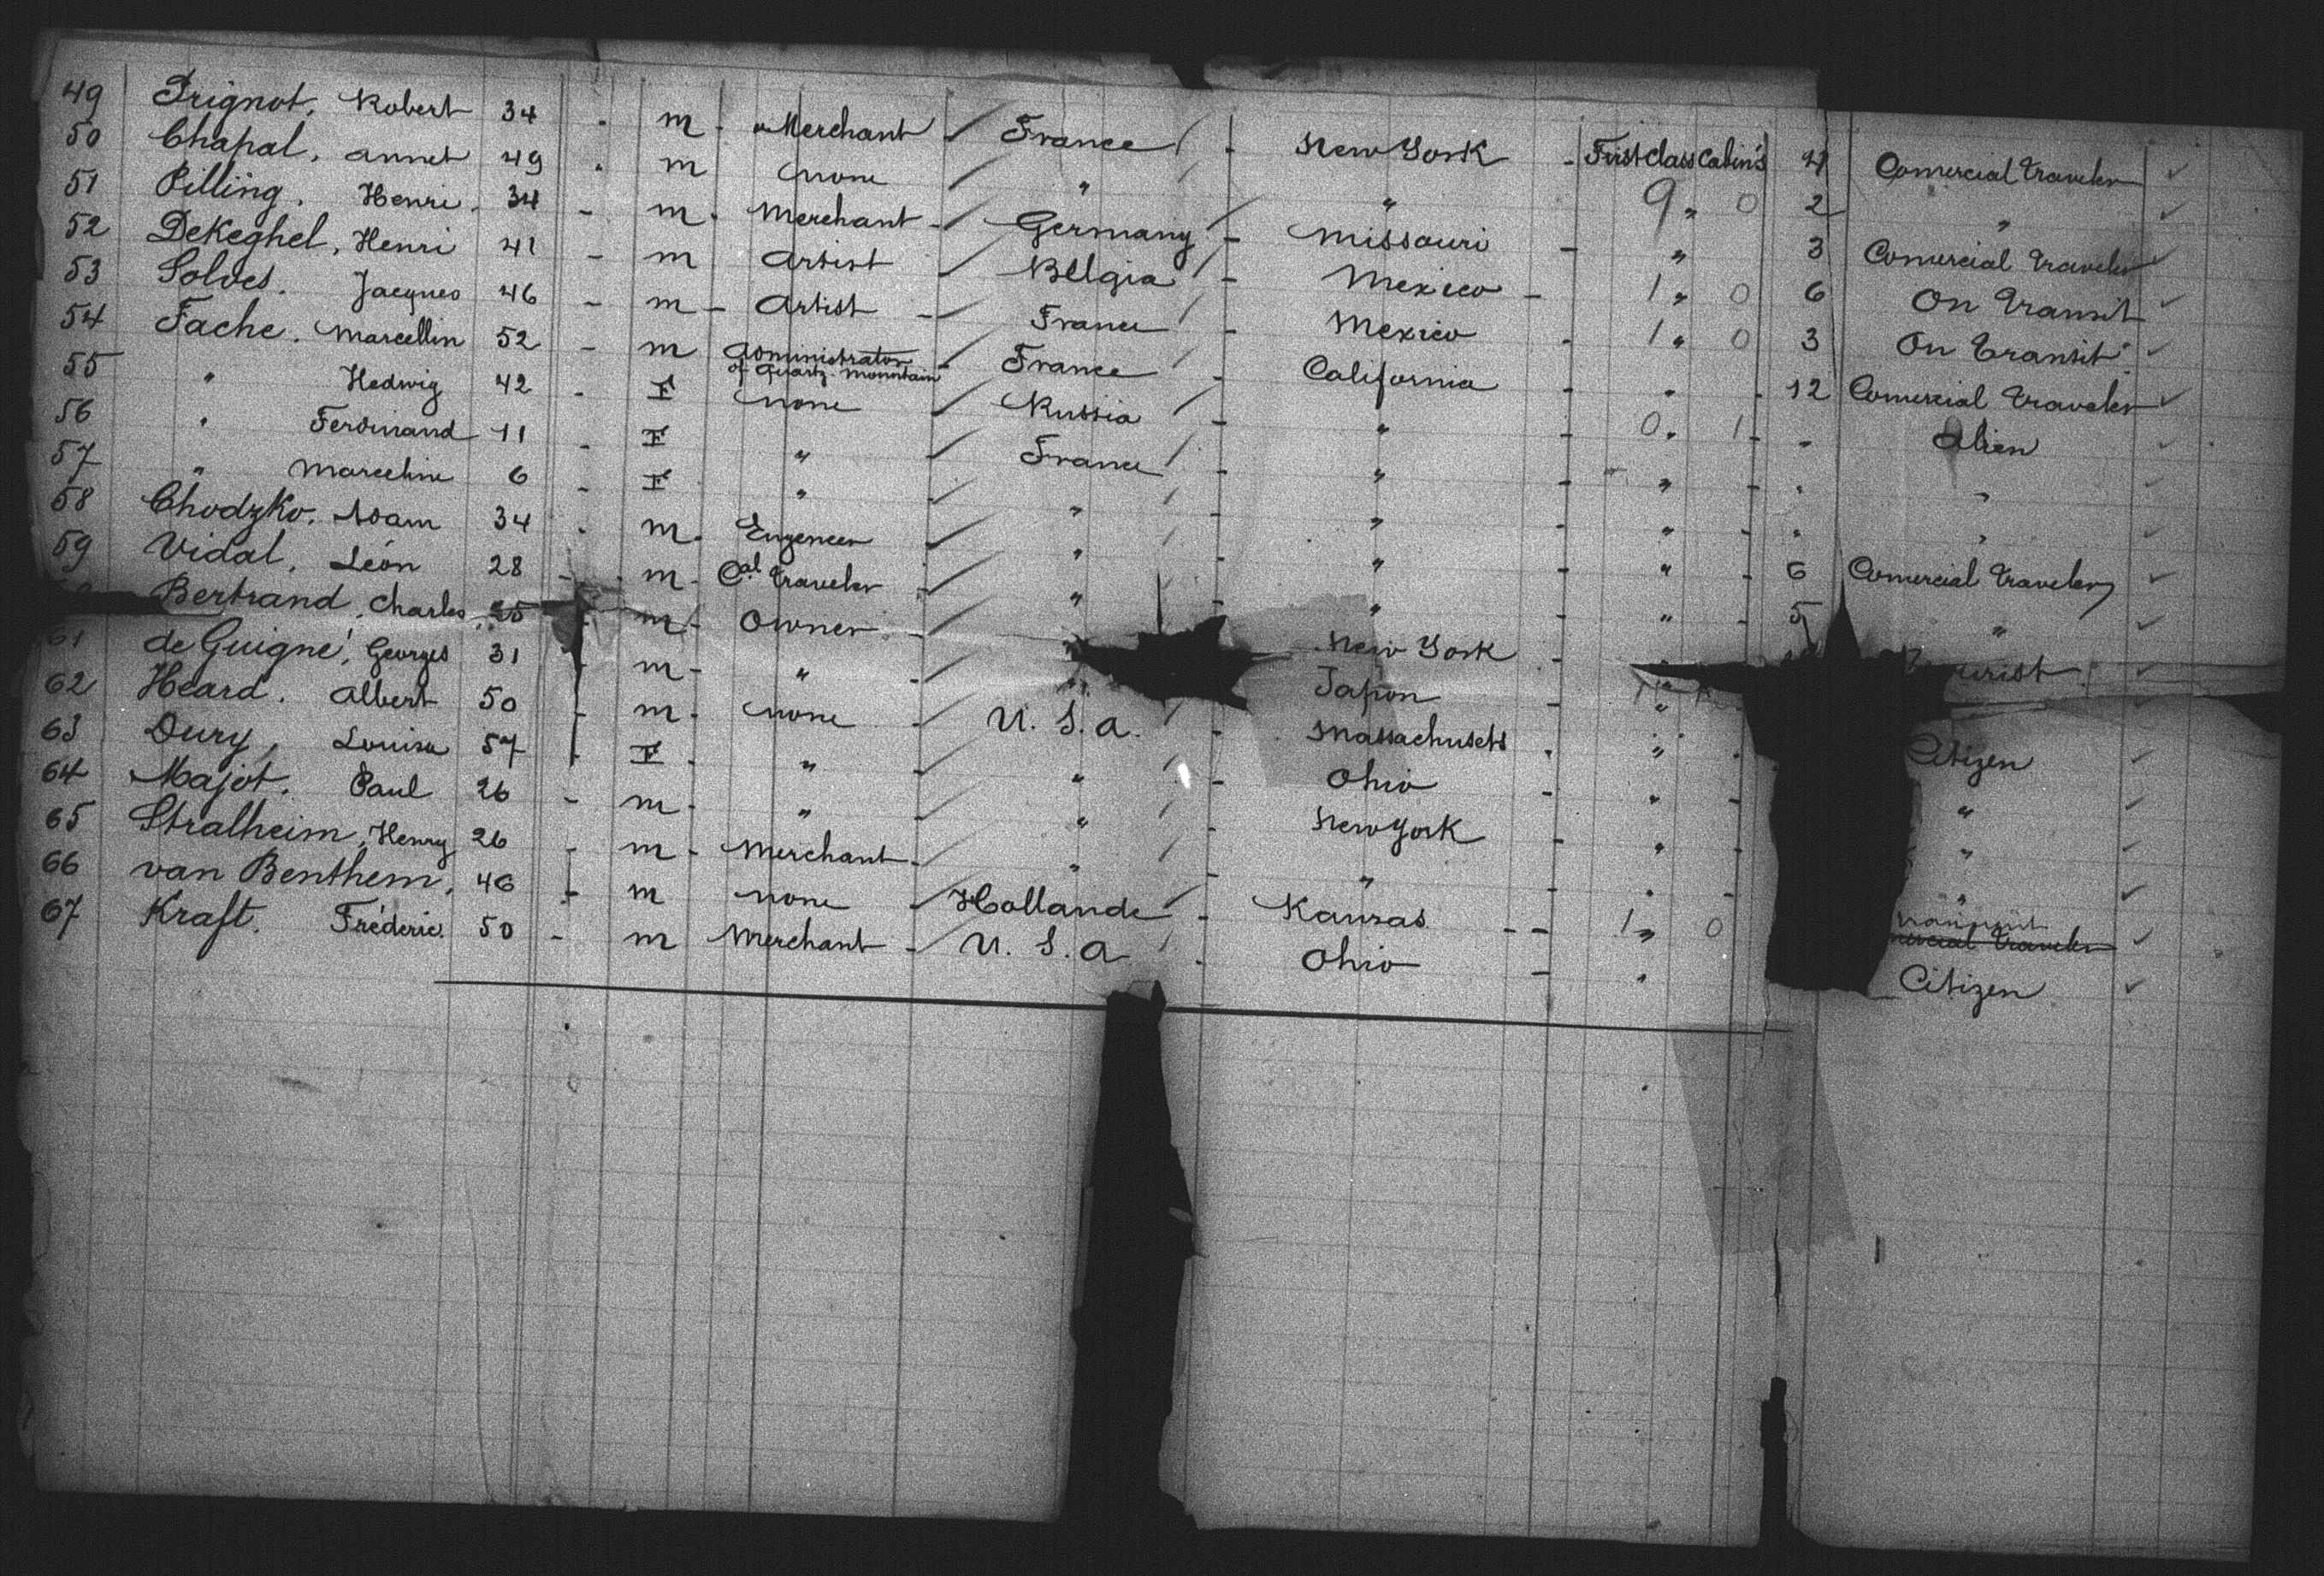 49 Prignot, Robert 34 - m - Merchant / France / - New York - Frist Class Cabin's 4 Comercial Traveler ✓
50 Chapal, Annet 49 - m none / " / " 9 " 0 2 " ✓
51 Pilling, Henri 34 - m - Merchant - / Germany / - Missouri - " 3 Comercial Traveler ✓
52 DeKeghel, Henri 41 - m Artist / Bllgia / - Mexico - 1 " 0 6 On Transit ✓
53 Solves, Jacques 46 - m - Artist - / France / - Mexico - 1 " 0 3 On Transit ✓
54 Fache, Marcellin 52 - m Administrator of Quartz Mountain / France / - California - " - 12 Comercial Traveler ✓
55 " Hedwig 42 - F none / Russia / - " - 0 " 1 - " Alien ✓
56 " Ferdinand 11 - F " / France / - " - " - " " ✓
57 " Marceline 6 - F " / " / - " - " - " " ✓
58 Chodzko, Adam 34 - m - Engeneer / " / - " - " - 6 Comercial Traveler ✓
59 Vidal, Léon 28 - m - Cal Traveler / " / - " - " - 5 " ✓
Bertrand, Charles m - Owner - / " New York - " ✓
61 de Guigné, Georges 31 - m - " - / " Japon - " ✓
62 Heard, Albert 50 - m - none - / U. S. a. / - Massachusets - " - Citizen ✓
63 Dury, Louisa 57 - F - " - / " / - Ohio - " - " ✓
64 Majot, Paul 26 - m - " - / " / - New York - " - " ✓
65 Stralheim, Henry 26 - m - Merchant - / " / - " - " - " ✓
66 van Benthem, 46 - m none - / Hollande / - Kansas - - 1 " 0 Traveler ✓
67 Kraft, Fréderic 50 - m Merchant - / U. S. a / - Ohio - " Citizen ✓